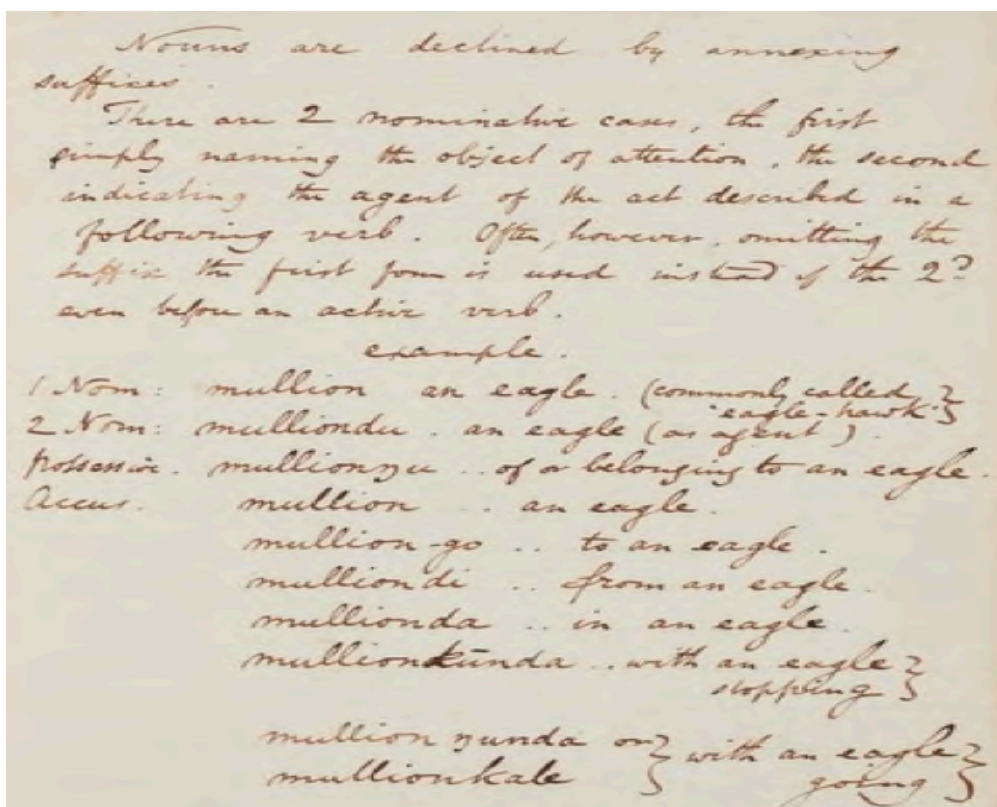 Nouns are declined by annexing
suffixes.
There are 2 nominative cases, the first
simply naming the object of attention, the second
indicating the agent of the act described in a
following verb. Often, however, omitting the
suffix the first form is used instead of the 2d
even before an active verb.
example.
1 Nom: mullion an eagle. (commonly called }
"eagle-hawk" }
2 Nom: mulliondu . an eagle (as agent).
Possessive. mullionŋu .. of or belonging to an eagle.
Accus. mullion .. an eagle.
mullion-go .. to an eagle.
mulliondi .. from an eagle.
mullionda .. in an eagle.
mullionkūnda .. with an eagle }
stopping }
mullion ŋunda or } with an eagle }
mullionkale } going }